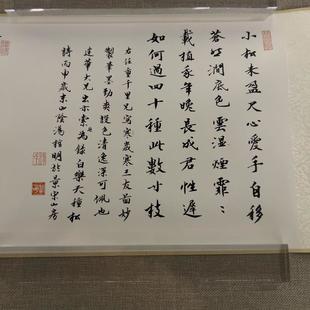 小松未盈尺心愛手自移
蒼然澗底色雲濕煙霏〻
栽植我年晚長成君性遲
如何過四十種此數寸枝
右任重千里兄寫寒歲寒三友圖妙
製筆墨勁爽設色清遠深可佩也
達華大兄出示索為錄白樂天種松
詩丙申歲末山陰湯明於景宗山房